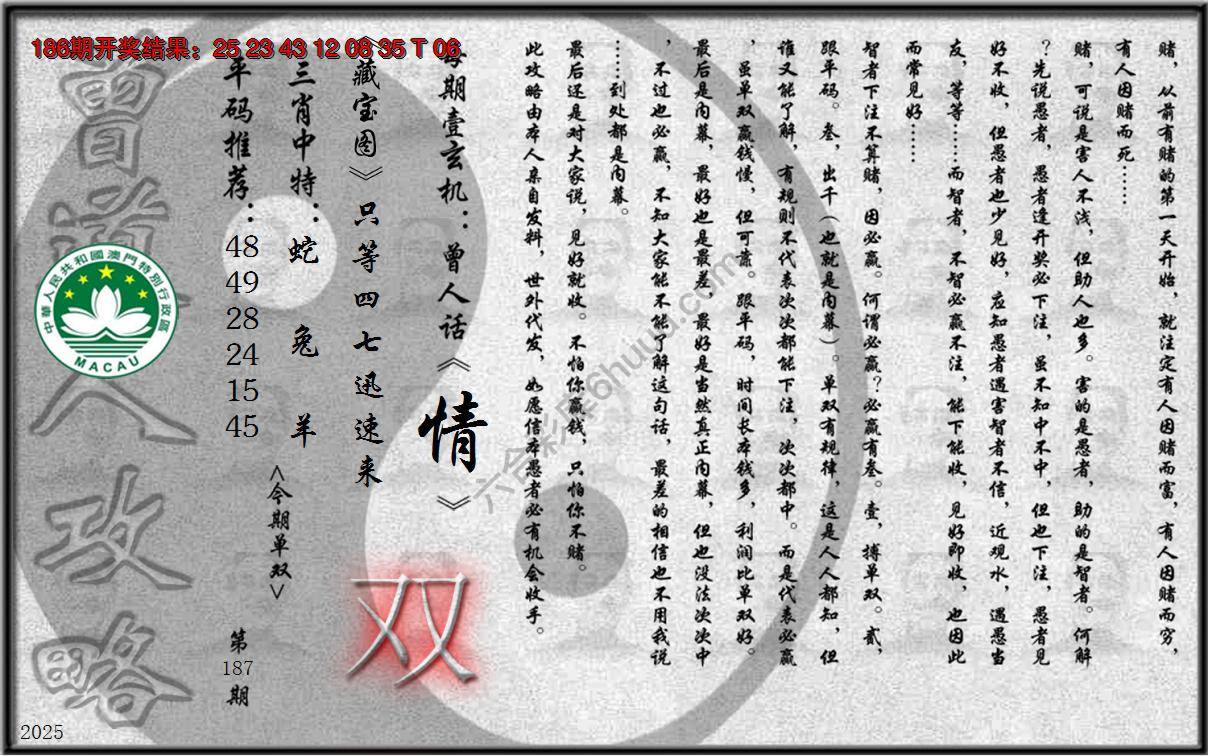 186期开奖结果：25 23 43 12 08 35 T 06
赌，从前有赌的第一天开始，就注定有人因赌而富，有人因赌而穷，
有人因赌而死……
赌，可说是害人不浅，但助人也多。害的是愚者，助的是智者。何解
？先说愚者，愚者逢开奖必下注，虽不知中不中，但也下注，愚者见
好不收，但愚者也少见好，应知愚者遇害智者不信，近观水，遇愚当
友，等等……而智者，不智必赢不注，能下能收，见好即收，也因此
而常见好……
智者下注不算赌，因必赢。何谓必赢？必赢有叁。壹，搏单双。贰，
跟平码。叁，出千（也就是内幕）。单双有规律，这是人人都知，但
谁又能了解，有规则不代表次次都能下注，次次都中。而是代表必赢
，虽单双赢钱慢，但可靠。跟平码，时间长本钱多，利润比单双好。
最后是内幕，最好也是最差，最好是当然真正内幕，但也没法次次中
，不过也必赢，不知大家能不能了解这句话，最差的相信也不用我说
……到处都是内幕。
最后还是对大家说，见好就收。不怕你赢钱，只怕你不赌。
此攻略由本人亲自发料，世外代发，如愿信本愚者必有机会收手。
每期壹玄机：曾人话《情》
《藏宝图》只等四七迅速来
三肖中特：蛇 兔 羊
<今期单双>
双
平码推荐：
48
49
28
24
15
45
第
187
期
曾道人攻略
中華人民共和國澳門特別行政區
MACAU
六合彩库6huuu.com
2025